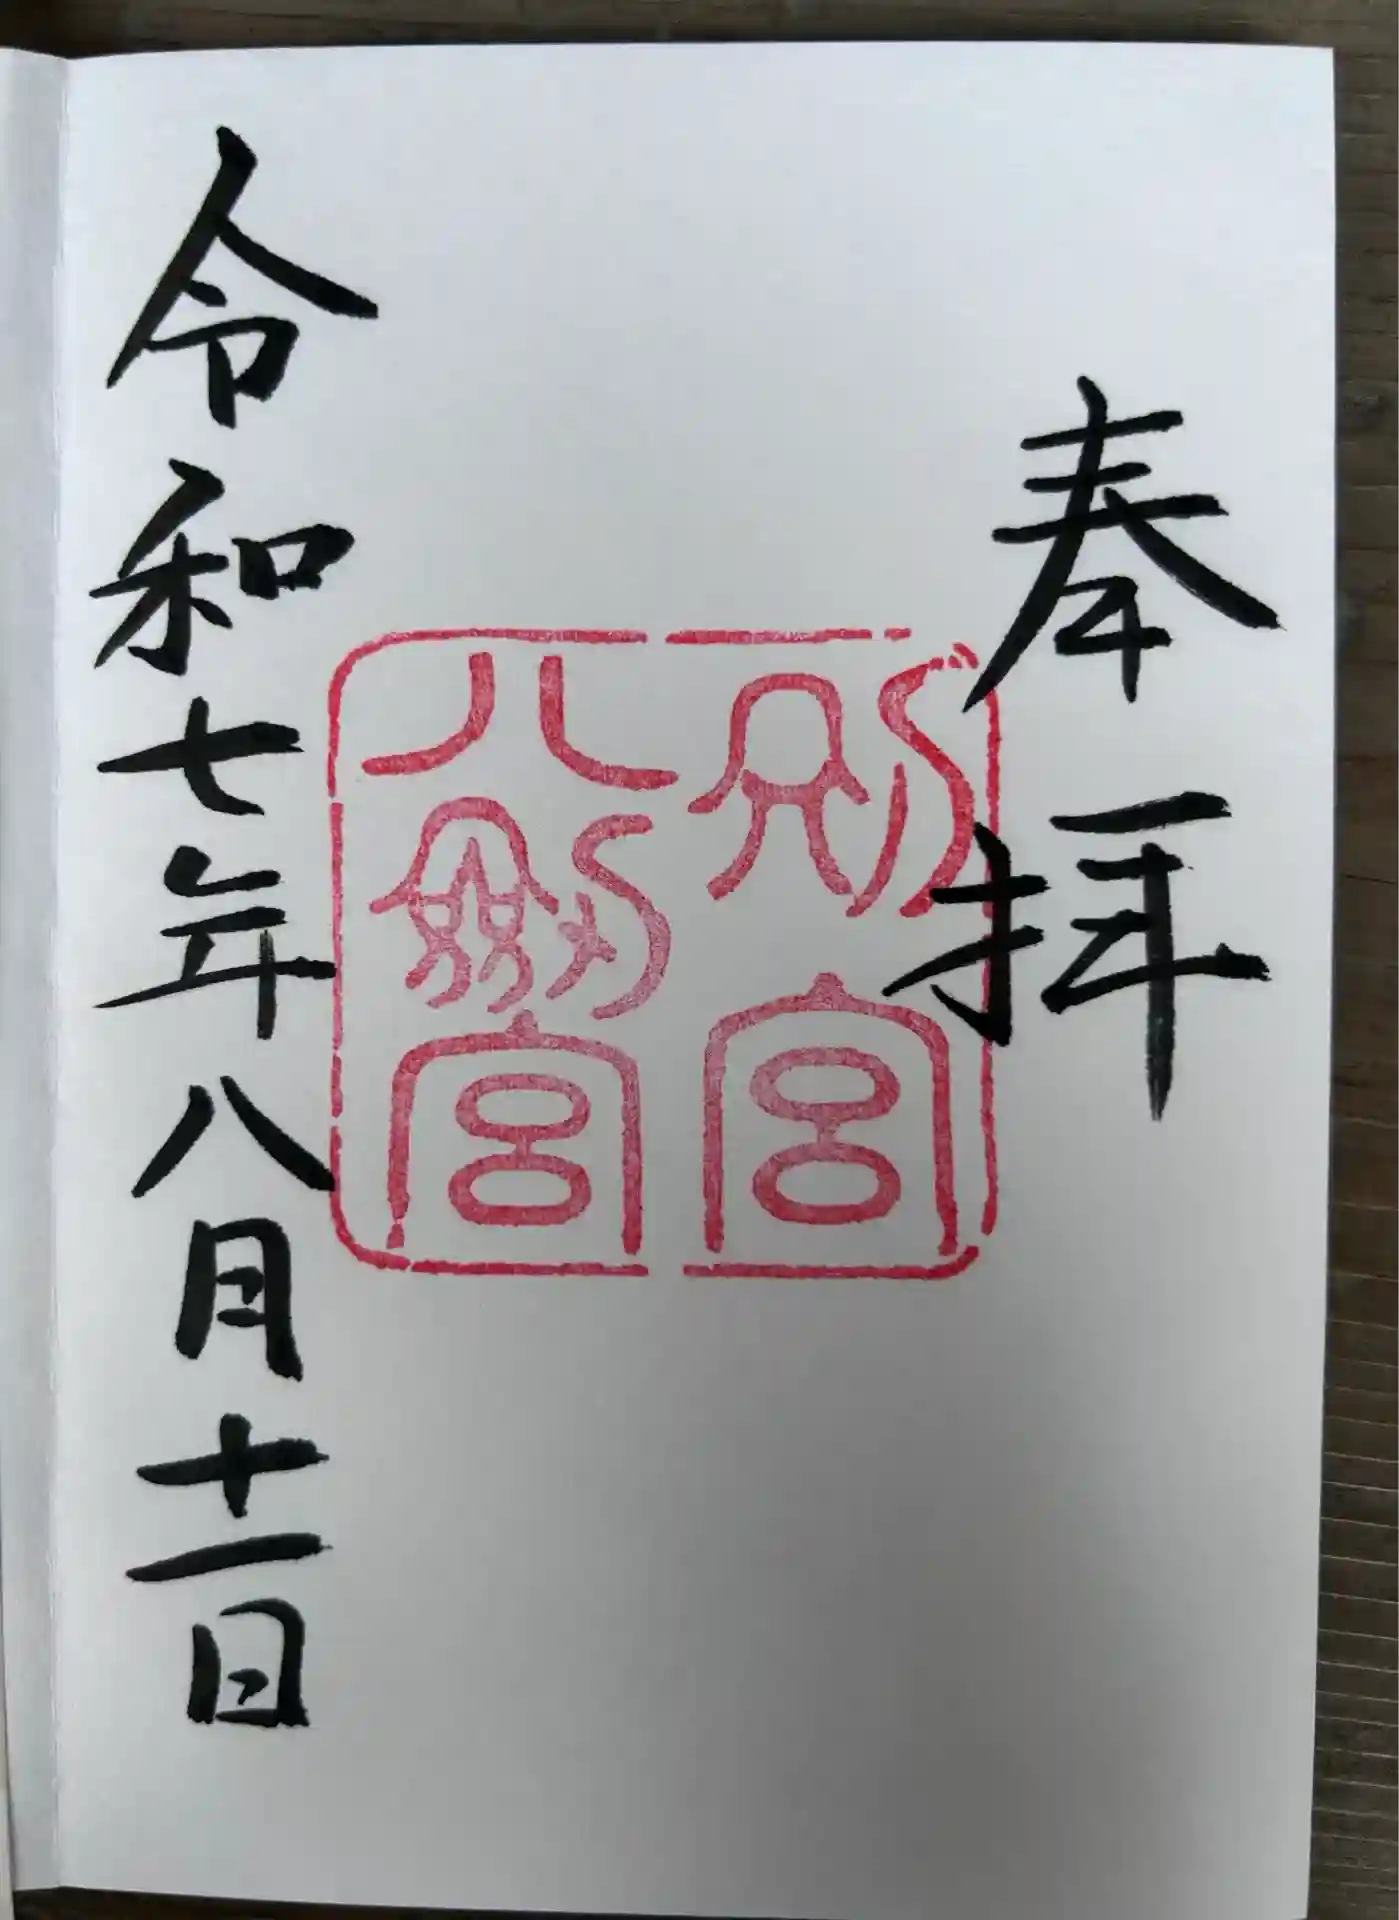 奉拝
別宮
八劒宮
令和七年八月十一日